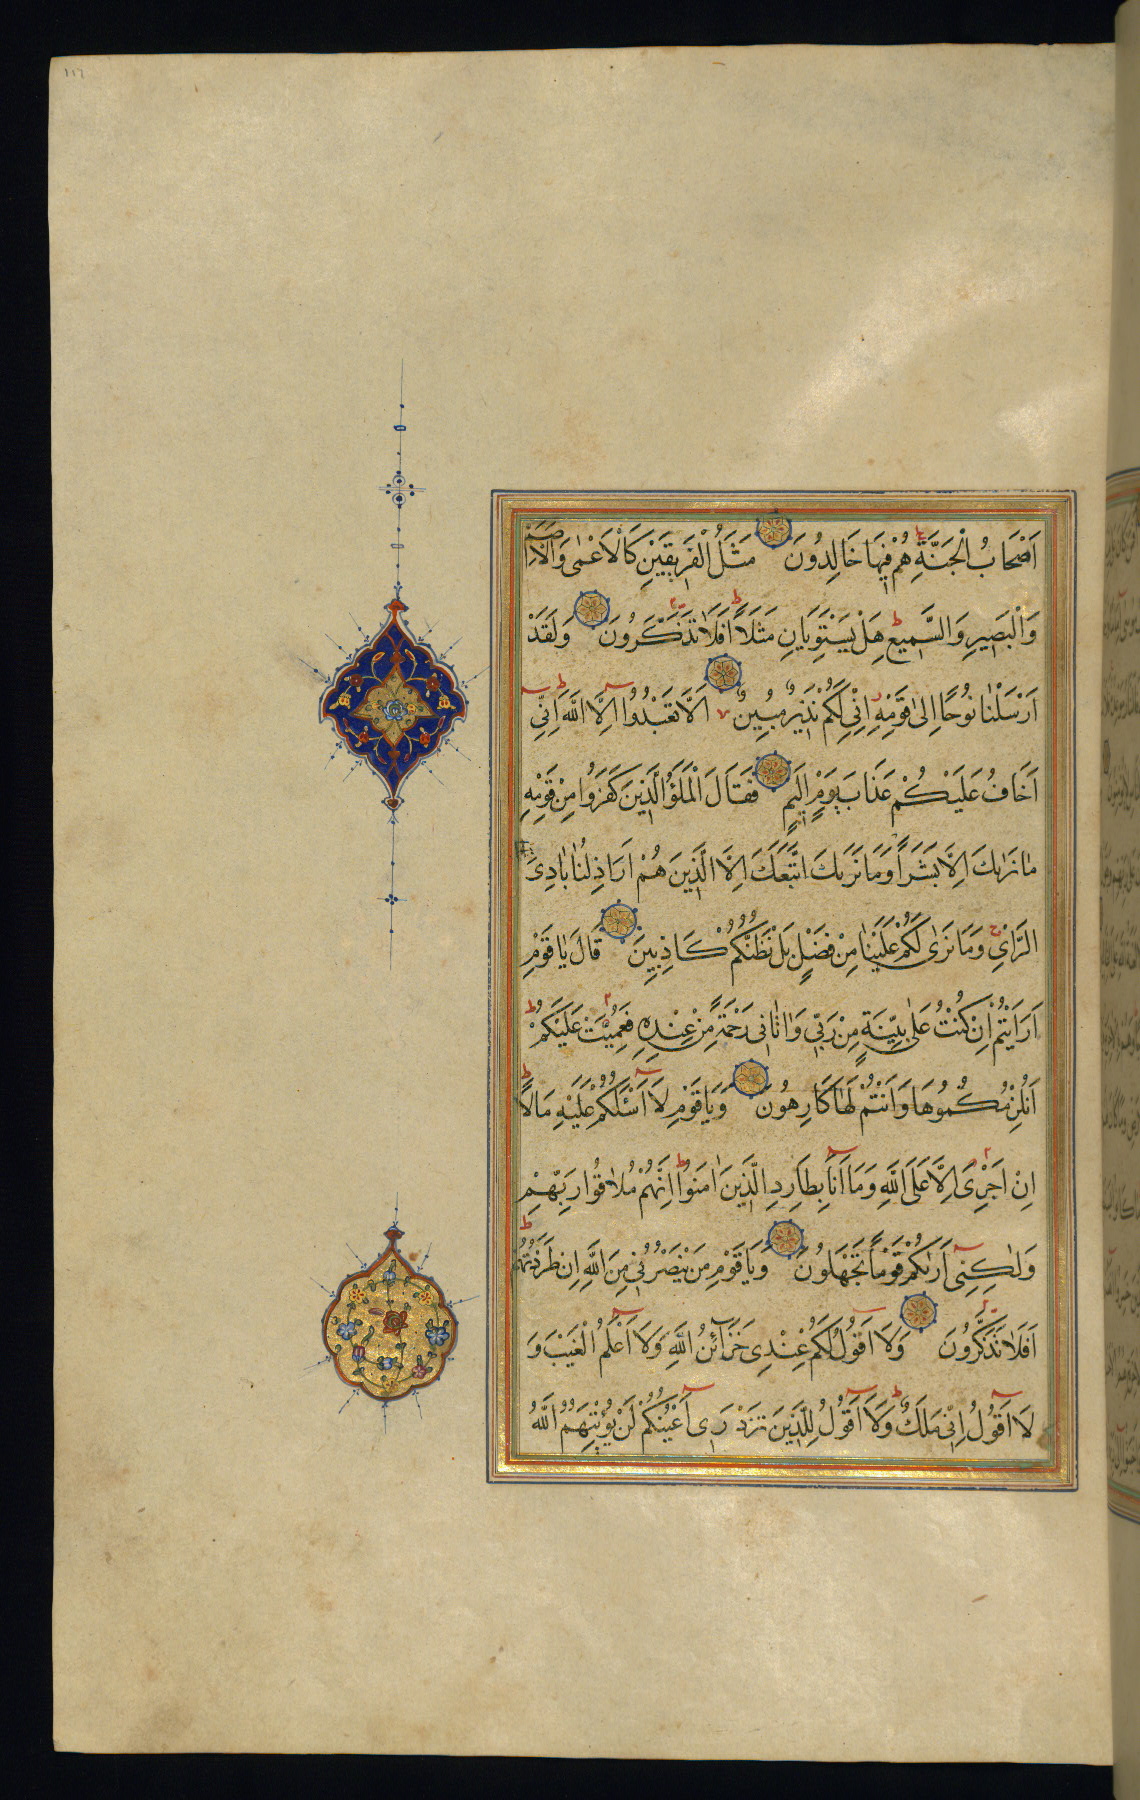 ١١٢
اَصْحَابُ الْجَنَّةِ هُمْ فِيهَا خَالِدُونَ مَثَلُ الْفَرِيقَيْنِ كَالْاَعْمٰى وَالْاَصَمِّ
وَالْبَصِيرِ وَالسَّمِيعِ هَلْ يَسْتَوِيَانِ مَثَلًا اَفَلَا تَذَكَّرُونَ وَلَقَدْ
اَرْسَلْنٰا نُوحًا اِلٰى قَوْمِهِ اِنِّي لَكُمْ نَذِيرٌ مُبِينٌ اَلَّا تَعْبُدُوا اِلَّا اللَّهَ اِنِّي
اَخَافُ عَلَيْكُمْ عَذَابَ يَوْمٍ اَلِيمٍ فَقَالَ الْمَلَؤُا الَّذِينَ كَفَرُوا مِنْ قَوْمِهِ
مٰا نَرٰىكَ اِلَّا بَشَرًا وَمَا نَرٰىكَ اتَّبَعَكَ اِلَّا الَّذِينَ هُمْ اَرَاذِلُنٰا بٰادِىَ
الرَّاْيِ وَمَا نَرٰى لَكُمْ عَلَيْنٰا مِنْ فَضْلٍ بَلْ نَظُنُّكُمْ كَاذِبِينَ قَالَ يٰا قَوْمِ
اَرَاَيْتُمْ اِنْ كُنْتُ عَلٰى بَيِّنَةٍ مِنْ رَبِّي وَاٰتٰانِي رَحْمَةً مِنْ عِنْدِهِ فَعُمِّيَتْ عَلَيْكُمْ
اَنُلْزِمُكُمُوهَا وَاَنْتُمْ لَهَا كَارِهُونَ وَيَا قَوْمِ لَا اَسْئَلُكُمْ عَلَيْهِ مَالًا
اِنْ اَجْرِىَ اِلَّا عَلَى اللَّهِ وَمَا اَنَا بِطَارِدِ الَّذِينَ اٰمَنُوا اِنَّهُمْ مُلٰاقُوا رَبِّهِمْ
وَلٰكِنِّى اَرٰىكُمْ قَوْمًا تَجْهَلُونَ وَيَا قَوْمِ مَنْ يَنْصُرُنِي مِنَ اللَّهِ اِنْ طَرَدْتُهُمْ
اَفَلَا تَذَكَّرُونَ وَلَا اَقُولُ لَكُمْ عِنْدِى خَزَآئِنُ اللَّهِ وَلَا اَعْلَمُ الْغَيْبَ وَ
لَا اَقُولُ اِنِّى مَلَكٌ وَلَا اَقُولُ لِلَّذِينَ تَزْدَرِى اَعْيُنُكُمْ لَنْ يُؤْتِيَهُمُ اللَّهُ